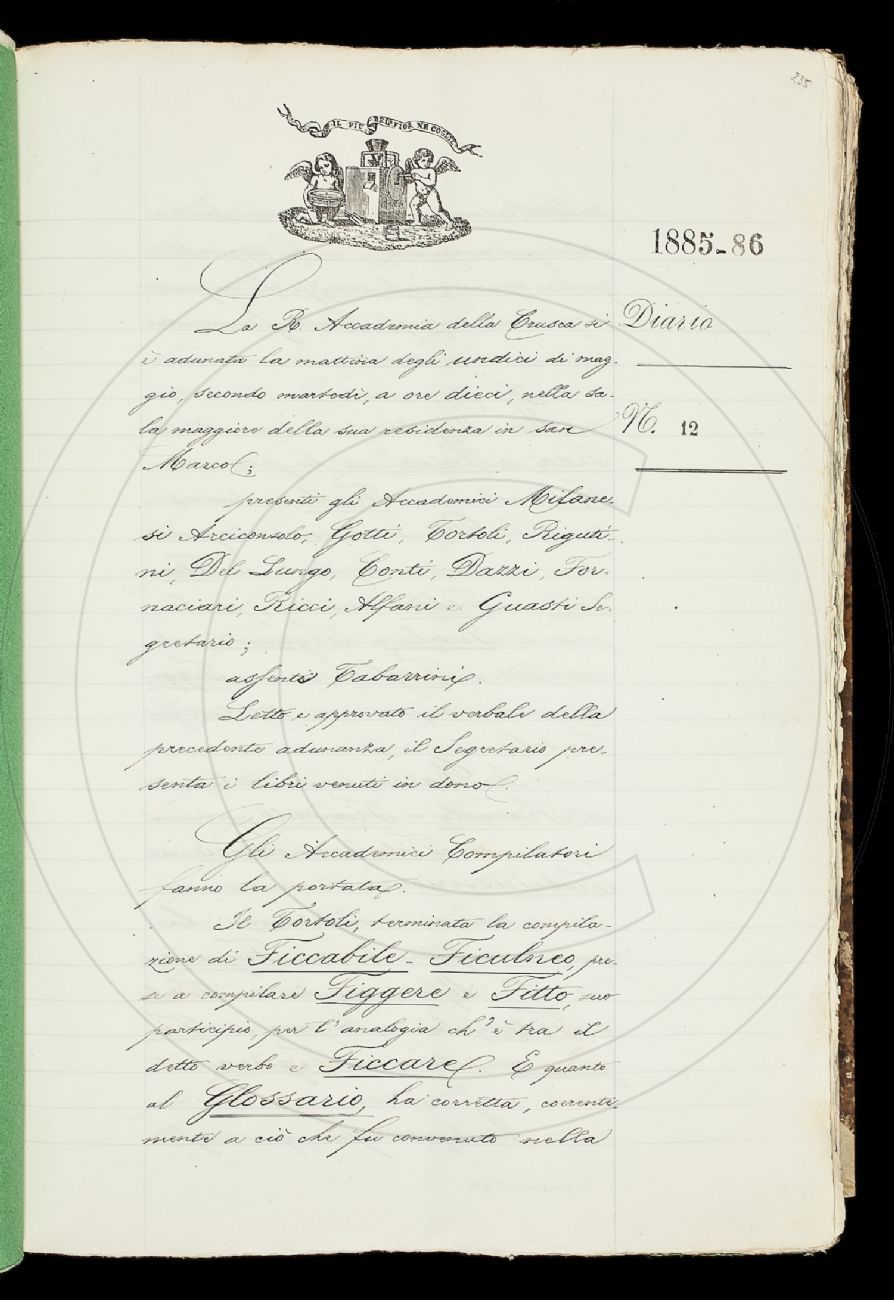 235
IL PIÙ BEL FIOR NE COGLIE
1885-86
La R. Accademia della Crusca si
è adunata la mattina degli undici di mag-
gio, secondo martedì, a ore dieci, nella sa-
la maggiore della sua residenza in San
Marco;
presenti gli Accademici Milane-
si Arciconsolo, Gotti, Tortoli, Riguti-
ni, Del Lungo, Conti, Dazzi, For-
naciari, Ricci, Alfani e Guasti Se-
gretario;
assente Tabarrini.
Letto e approvato il verbale della
precedente adunanza, il Segretario pre-
senta i libri venuti in dono.
Gli Accademici Compilatori
fanno la portata.
Il Tortoli, terminata la compila-
zione di Ficcabile - Ficulneo, pre-
se a compilare Figgere e Fitto, suo
participio, per l'analogia ch'è tra il
detto verbo e Ficcare. E quanto
al Glossario, ha corretta, coerente-
mente a ciò che fu convenuto nella
Diario
N. 12